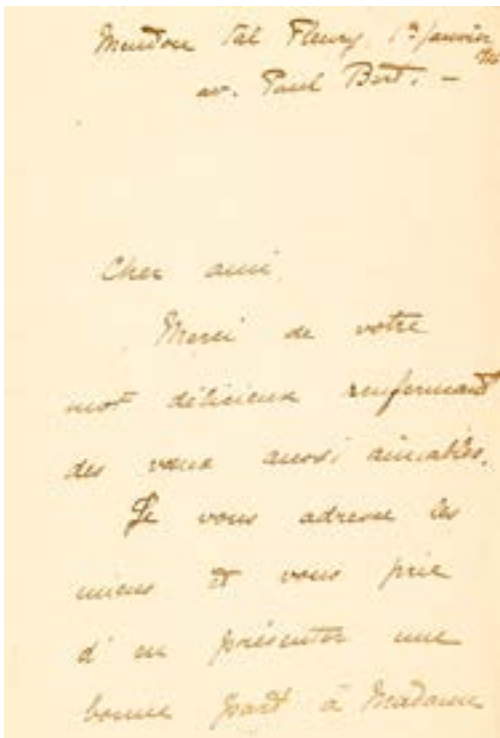 Meudon Val Fleury, 1er janvier
av. Paul Bert. —
Cher ami,
Merci de votre
mot délicieux renfermant
des vœux aussi aimables.
Je vous adresse les
miens et vous prie
d'en présenter une
bonne part à Madame